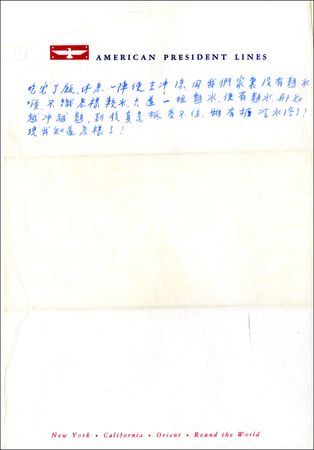 AMERICAN PRESIDENT LINES
吃完了飯,休息一陣便去冲凉,因我們家裏沒有熱水
喉,不識怎樣較水,只道一扭熱水,便有熱水,那知
越冲越熱,到後真是抵受不住,
現我知道怎樣了!
New York • California • Orient • Round the World